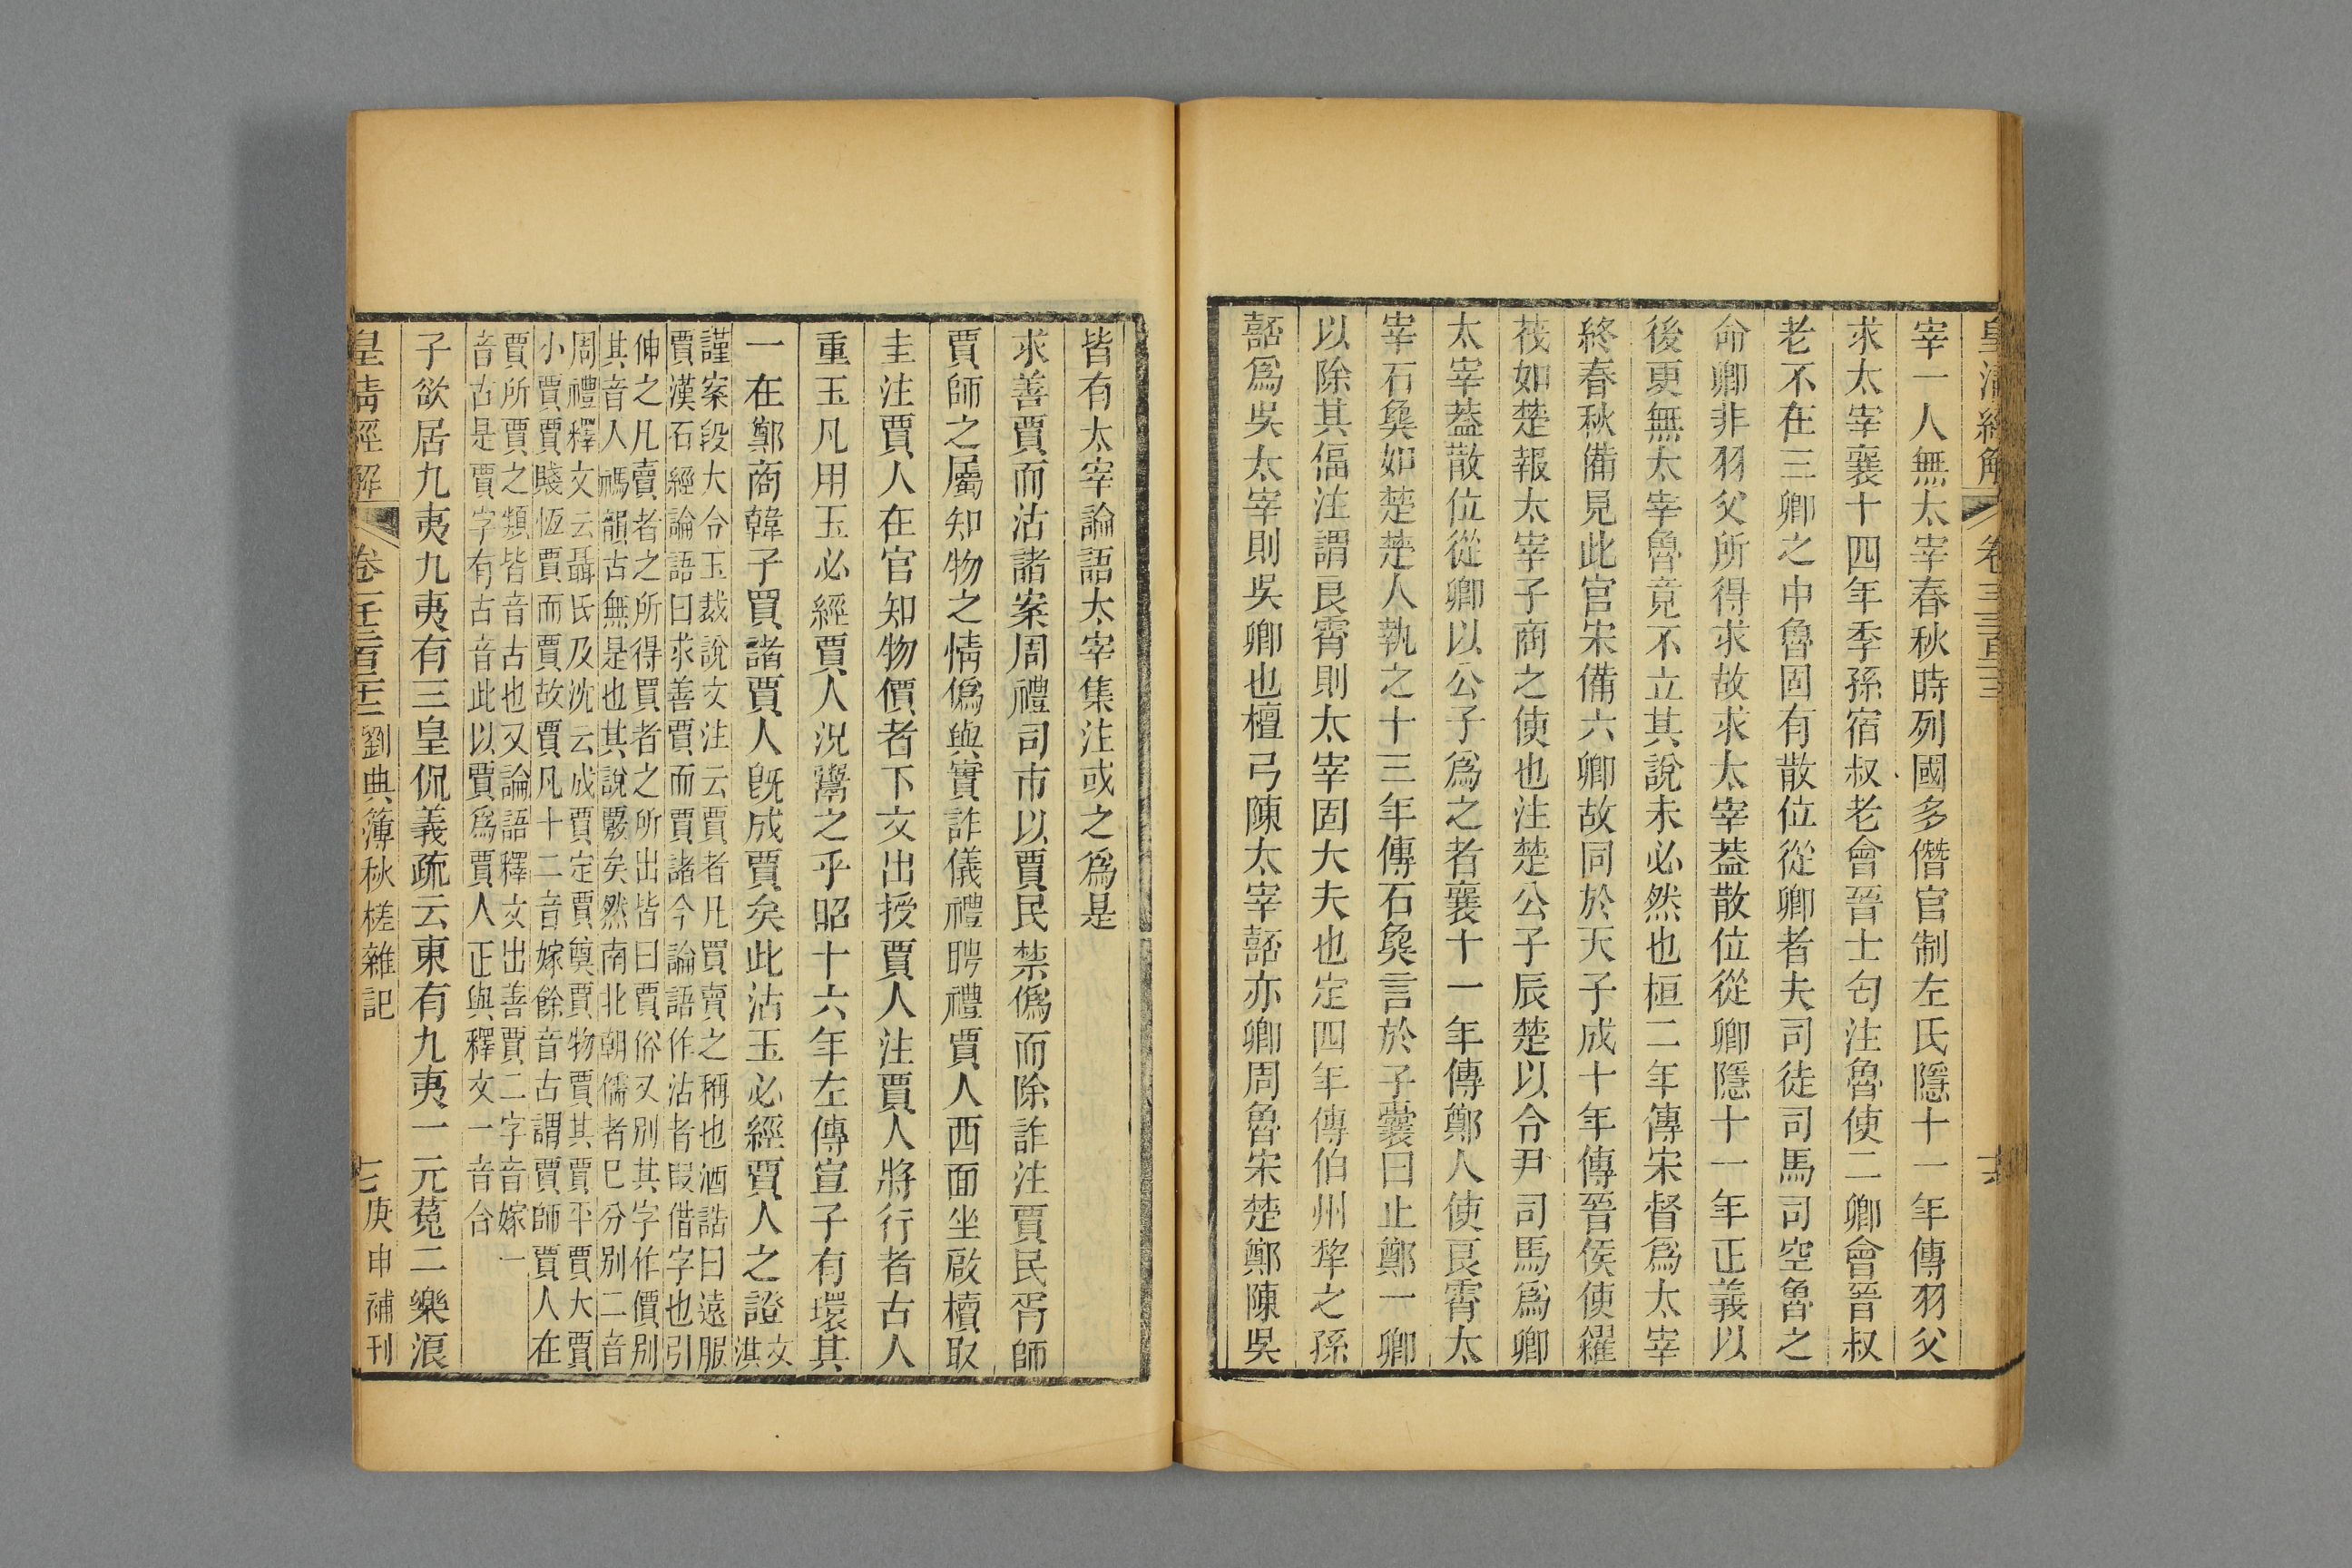 皇清經解 卷三百二十三
宰一人無太宰春秋時列國多僭官制左氏隱十一年傳羽父
求太宰襄十四年季孫宿叔老會晉士匄注魯使二卿會晉叔
老不在三卿之中魯固有散位從卿者夫司徒司馬司空魯之
命卿非羽父所得求故求太宰葢散位從卿隱十一年正義以
後更無太宰魯竟不立其說未必然也桓二年傳宋督爲太宰
終春秋備見此官宋備六卿故同於天子成十年傳晉侯使糴
茷如楚報太宰子商之使也注楚公子辰楚以令尹司馬爲卿
太宰葢散位從卿以公子爲之者襄十一年傳鄭人使良霄太
宰石㚟如楚楚人執之十三年傳石㚟言於子囊曰止鄭一卿
以除其偪注謂良霄則太宰固大夫也定四年傳伯州犂之孫
嚭爲吳太宰則吳卿也檀弓陳太宰嚭亦卿周魯宋楚鄭陳吳
皆有太宰論語太宰集注或之爲是
求善賈而沽諸案周禮司市以賈民禁僞而除詐注賈民胥師
賈師之屬知物之情僞與實詐儀禮聘禮賈人西面坐啟櫝取
圭注賈人在官知物價者下文出授賈人注賈人將行者古人
重玉凡用玉必經賈人況鬻之乎昭十六年左傳宣子有環其
一在鄭商韓子買諸賈人旣成賈矣此沽玉必經賈人之證文
淇
謹案段大令玉裁說文注云賈者凡買賣之稱也酒誥曰遠服
賈漢石經論語曰求善賈而賈諸今論語作沽者叚借字也引
伸之凡賣者之所得買者之所出皆曰賈俗又別其字作價別
其音入禡韻古無是也其說覈矣然南北朝儒者已分別二音
周禮釋文云聶氏及沈云成賈定賈奠賈物賈其賈平賈大賈
小賈賈賤恆賈而賈故賈凡十二音嫁餘音古謂賈師賈人在
賈所賈之類皆音古也又論語釋文出善賈二字音嫁一
音古是賈字有古音此以賈爲賈人正與釋文一音合
子欲居九夷九夷有三皇侃義疏云東有九夷一元菟二樂浪
皇清經解 劉典簿秋槎雜記 七 庚申補刊